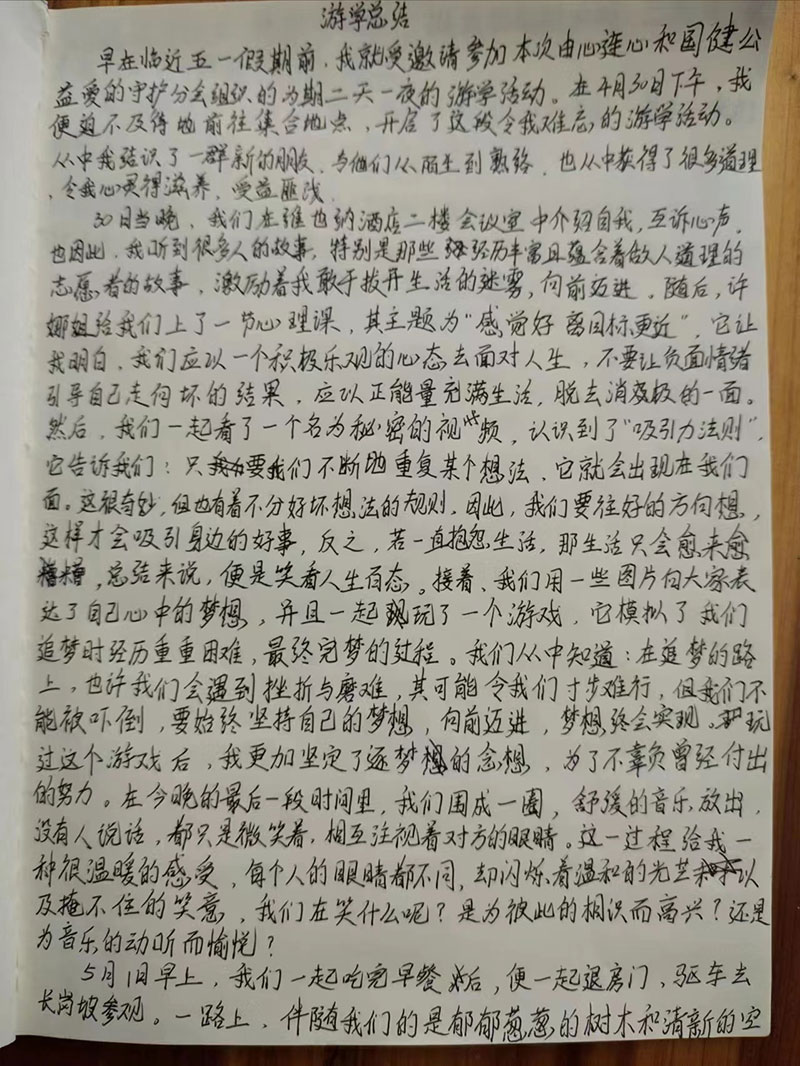 游学总结
早在临近五一假期前,我就受邀请参加本次由心连心和国健公
益爱的守护分会组织的为期二天一夜的游学活动。在4月30日下午,我
便迫不及待地前往集合地点,开启了这段令我难忘的游学活动。
从中我结识了一群新的朋友,与他们从陌生到熟络,也从中获得了很多道理
,令我心灵得滋养,受益匪浅.
30日当晚,我们在维也纳酒店二楼会议室中介绍自我,互诉心声.
也因此,我听到很多人的故事,特别是那些经历丰富且蕴含着做人道理的
志愿者的故事,激励着我敢于拨开生活的迷雾,向前迈进。随后,许
娜姐给我们上了一节心理课,其主题为“感觉好 离目标更近”,它让
我明白,我们应以一个积极乐观的心态去面对人生,不要让负面情绪
引导自己走向坏的结果,应以正能量充满生活,脱去消极的一面。
然后,我们一起看了一个名为秘密的视频,认识到了“吸引力法则”,
它告诉我们:只要我们不断地重复某个想法,它就会出现在我们
面。这很奇妙,但也有着不分好坏想法的规则,因此,我们要往好的方向想,
这样才会吸引身边的好事,反之,若一直抱怨生活,那生活只会愈来愈
糟糕,总结来说,便是笑看人生百态。接着、我们用一些图片向大家表
达了自己心中的梦想,并且一起玩了一个游戏,它模拟了我们
追梦时经历重重困难,最终完梦的过程。我们从中知道:在追梦的路
上,也许我们会遇到挫折与磨难,其可能令我们寸步难行,但我们不
能被吓倒,要始终坚持自己的梦想,向前迈进,梦想终会实现。玩
过这个游戏后,我更加坚定了逐梦的念想,为了不辜负曾经付出
的努力。在今晚的最后一段时间里,我们围成一圈,舒缓的音乐放出,
没有人说话,都只是微笑着,相互注视着对方的眼睛。这一过程给我一
种很温暖的感受,每个人的眼睛都不同,却闪烁着温和的光芒以
及掩不住的笑意,我们在笑什么呢?是为彼此的相识而高兴?还是
为音乐的动听而愉悦?
5月1日早上,我们一起吃完早餐后,便一起退房门、驱车去
长岗坡参观。一路上,伴随我们的是郁郁葱葱的树木和清新的空